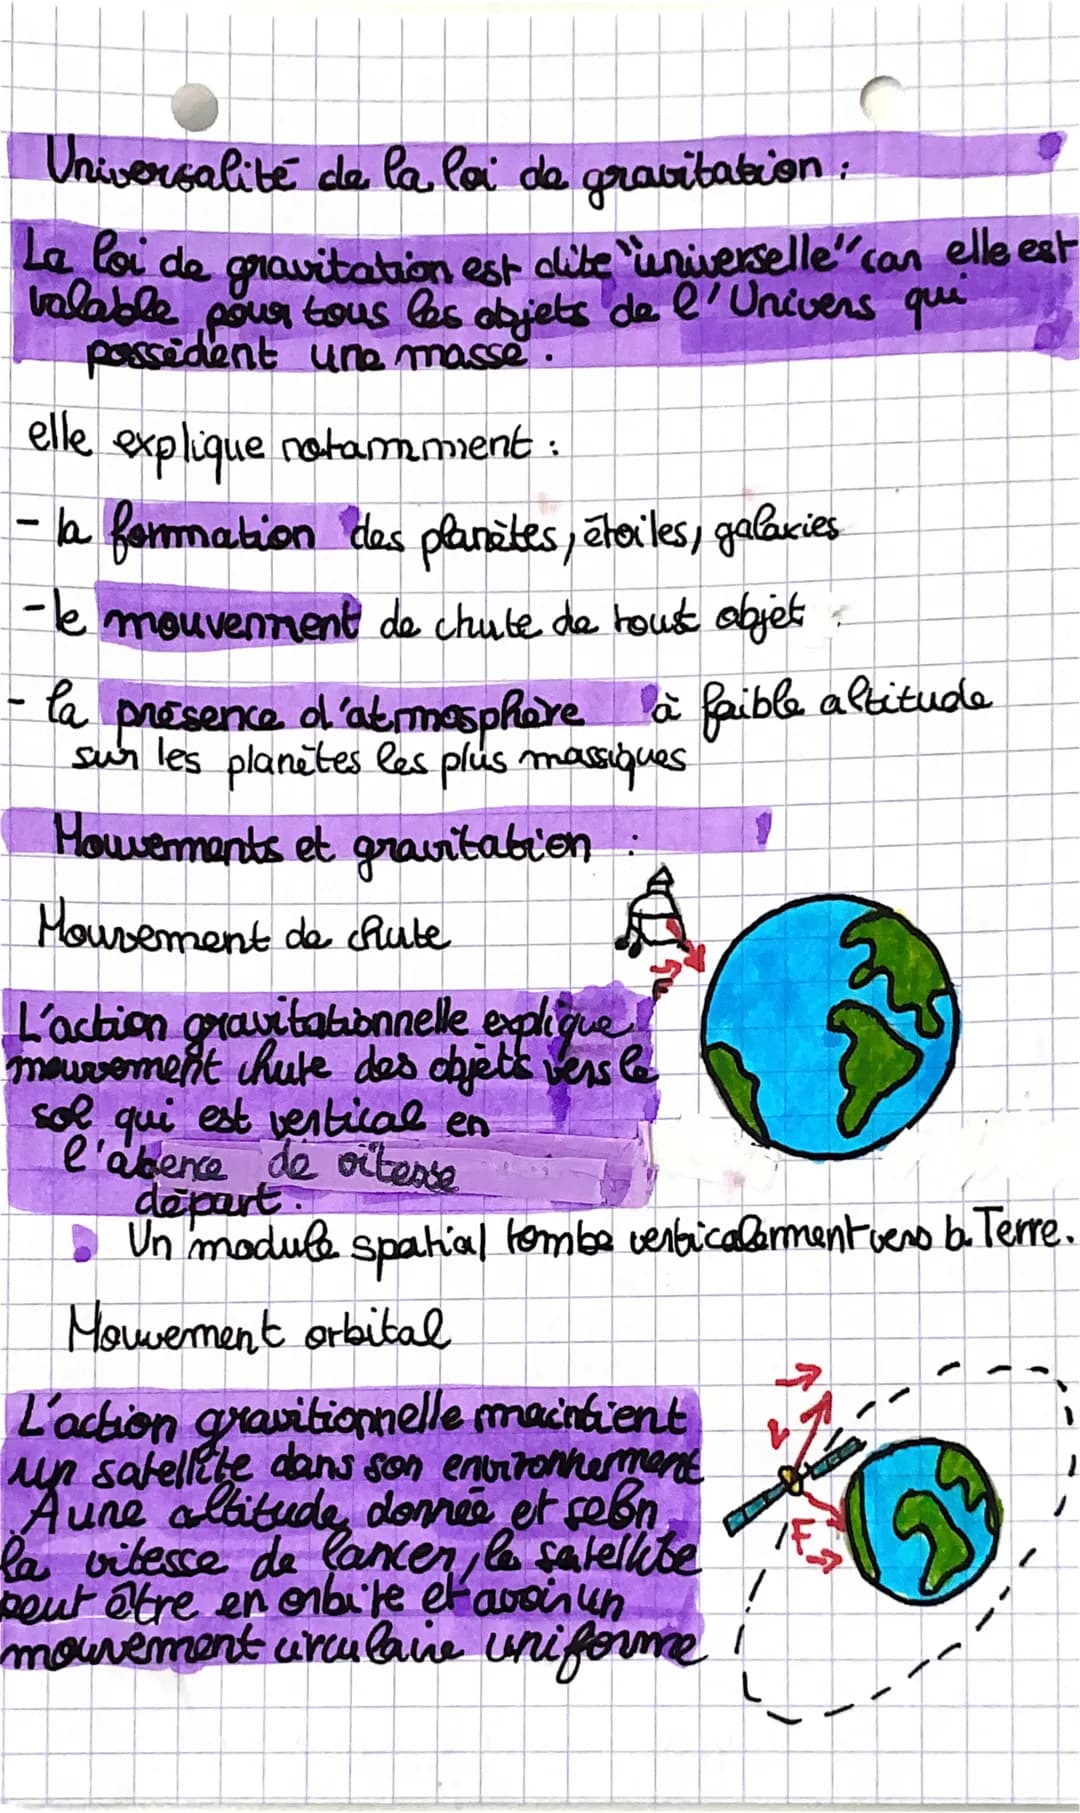 Universalité de la loi de gravitation :
La loi de gravitation est dite "universelle" car elle est
valable pour tous les objets de l'Univers qui
possèdent une masse.
elle explique notamment :
- la formation des planètes, étoiles, galaxies
- le mouvement de chute de tout objet
- la présence d'atmosphère à faible altitude
sur les planètes les plus massiques
Mouvements et gravitation :
Mouvement de chute
F
L'action gravitationnelle explique
mouvement chute des objets vers le
sol qui est vertical en
l'absence de vitesse
départ.
Un module spatial tombe verticalement vers la Terre.
Mouvement orbital
L'action gravitionnelle maintient
un satellite dans son environnement
A une altitude donnée et selon
la vitesse de lancer, le satellite
peut être en orbite et avoir un
mouvement circulaire uniforme
V
F